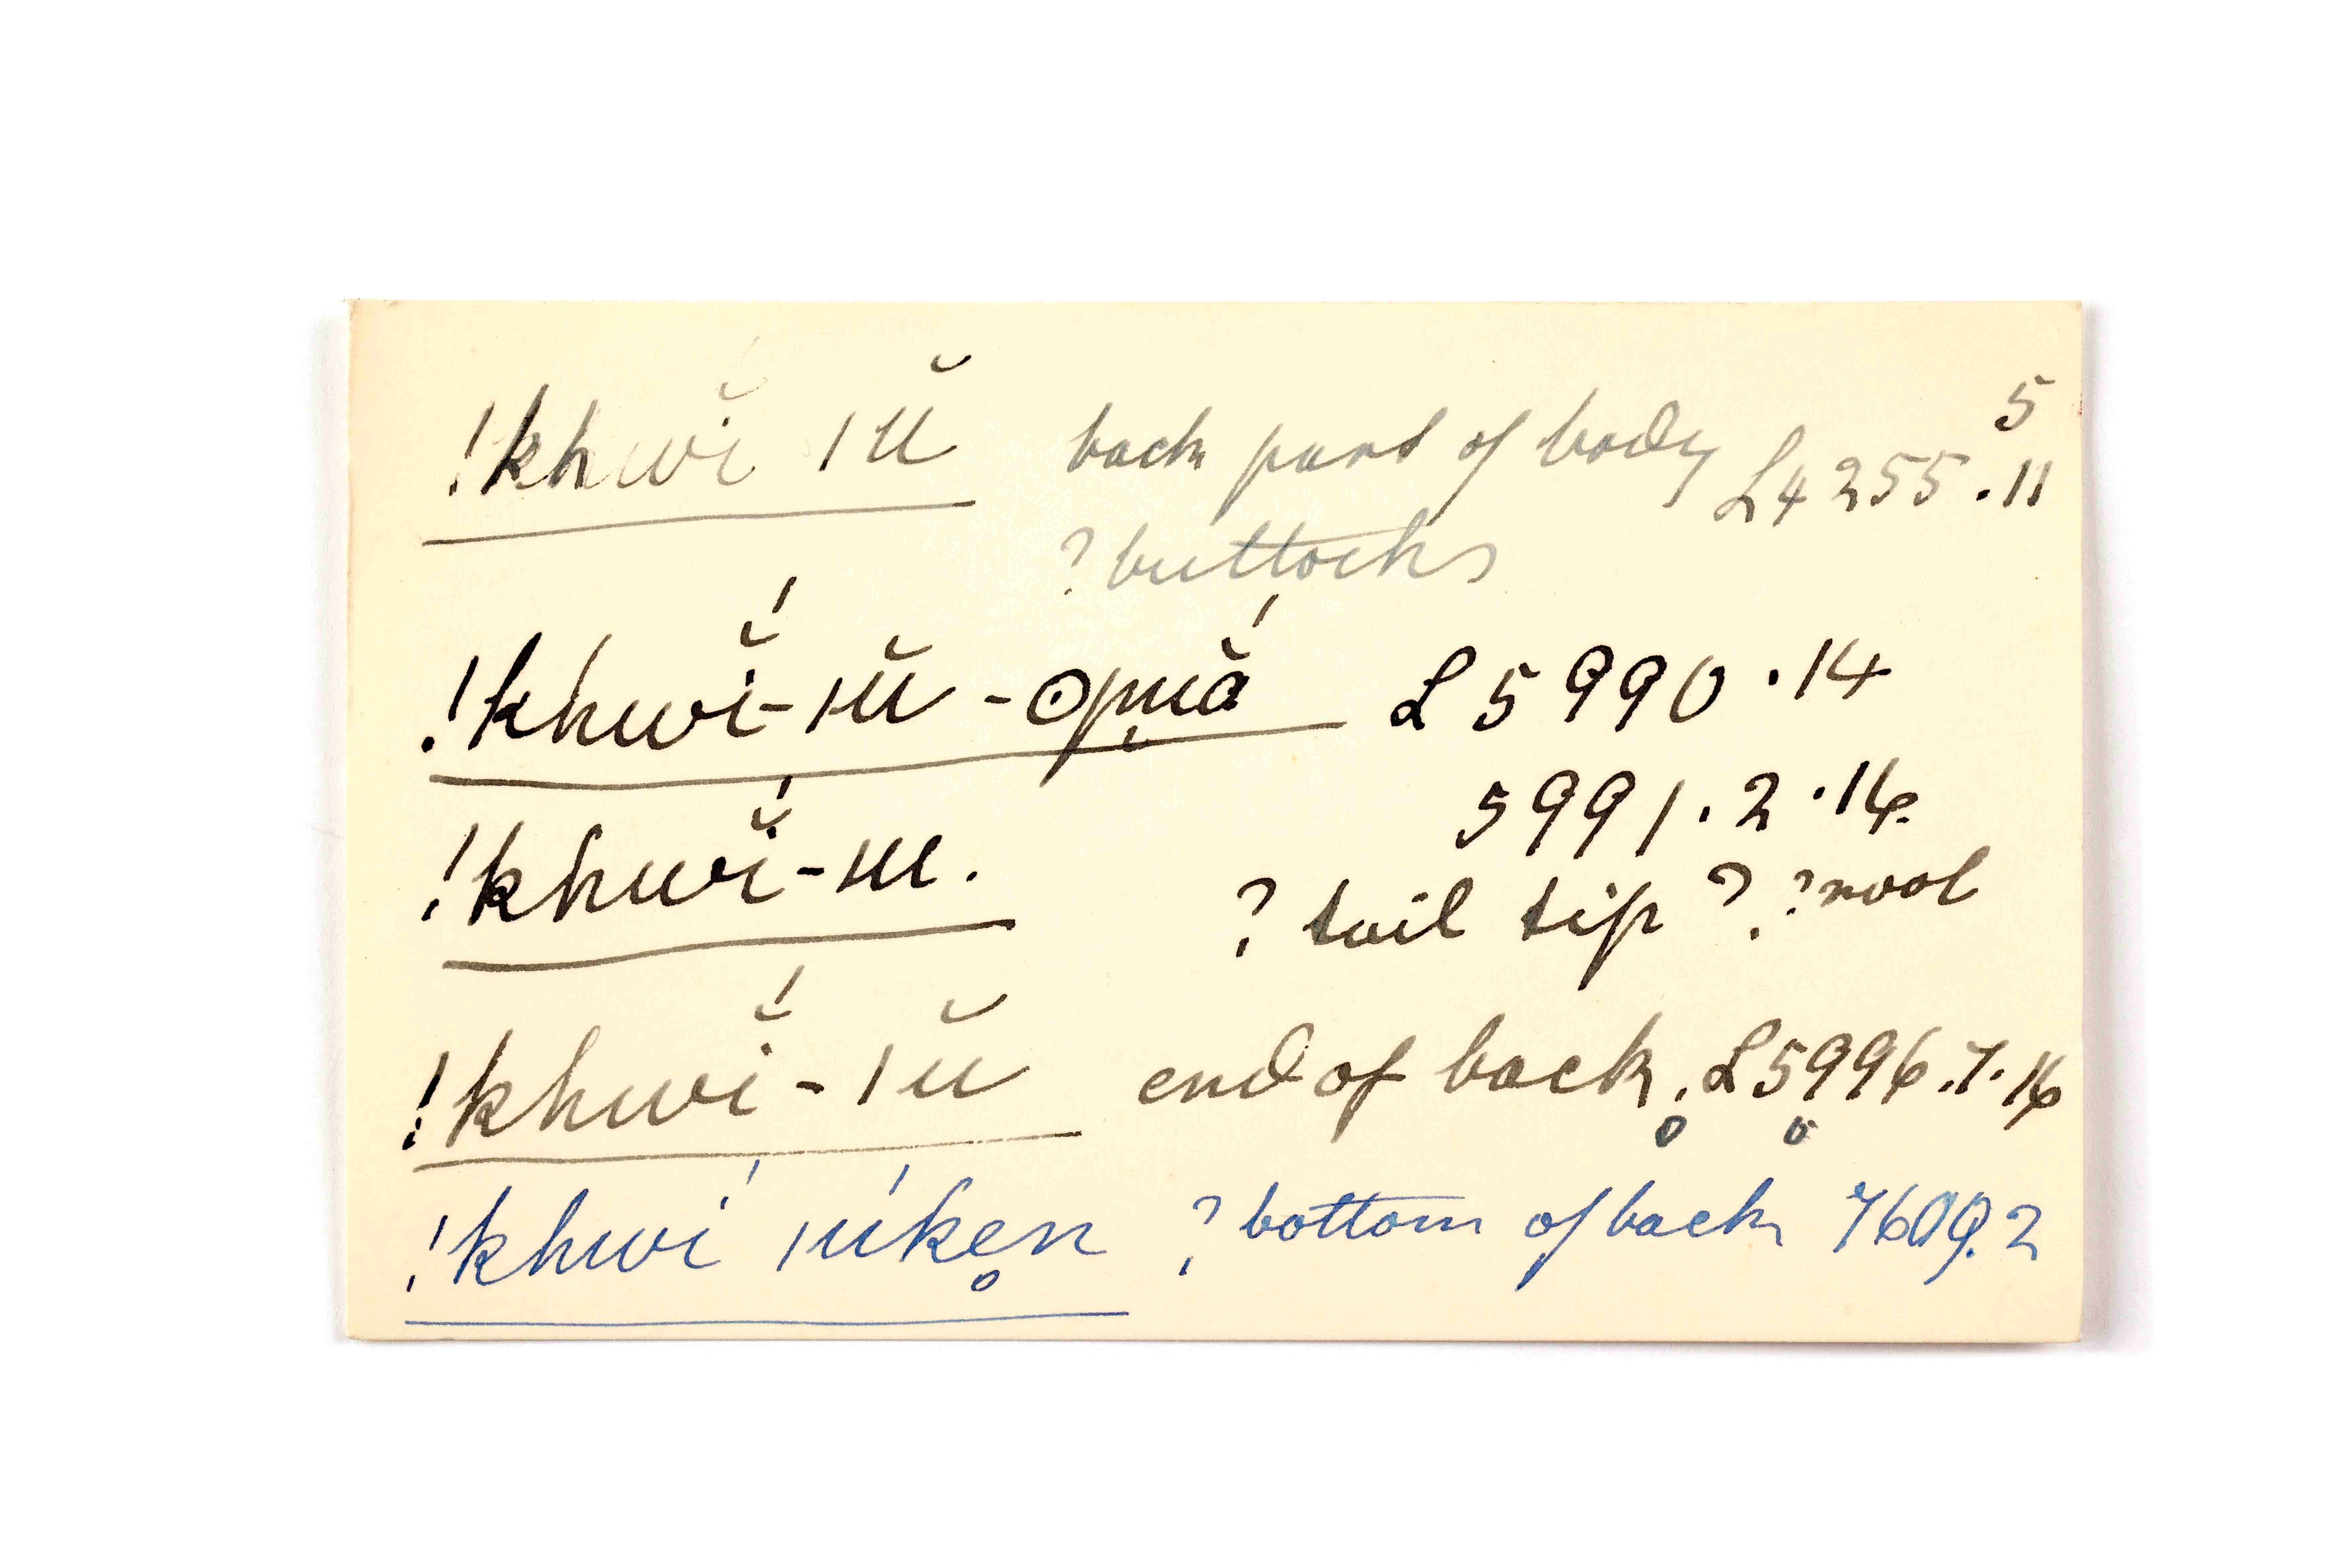 5
!khwĭ ǀŭ back part of body L4255.11
? buttocks
!khwĭ́-ǀŭ-ʘpu̯ắ L5990.14
5991.2.14.
!khwĭ́-ǀu. ? tail tip ? ? root
!khwĭ́-ǀŭ end of back. L5996.7.16
!khwí ǀúke̥n ? bottom of back 7609.2